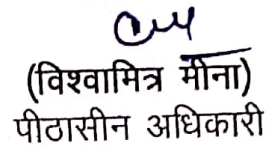 (विश्वामित्र मीना)
पीठासीन अधिकारी